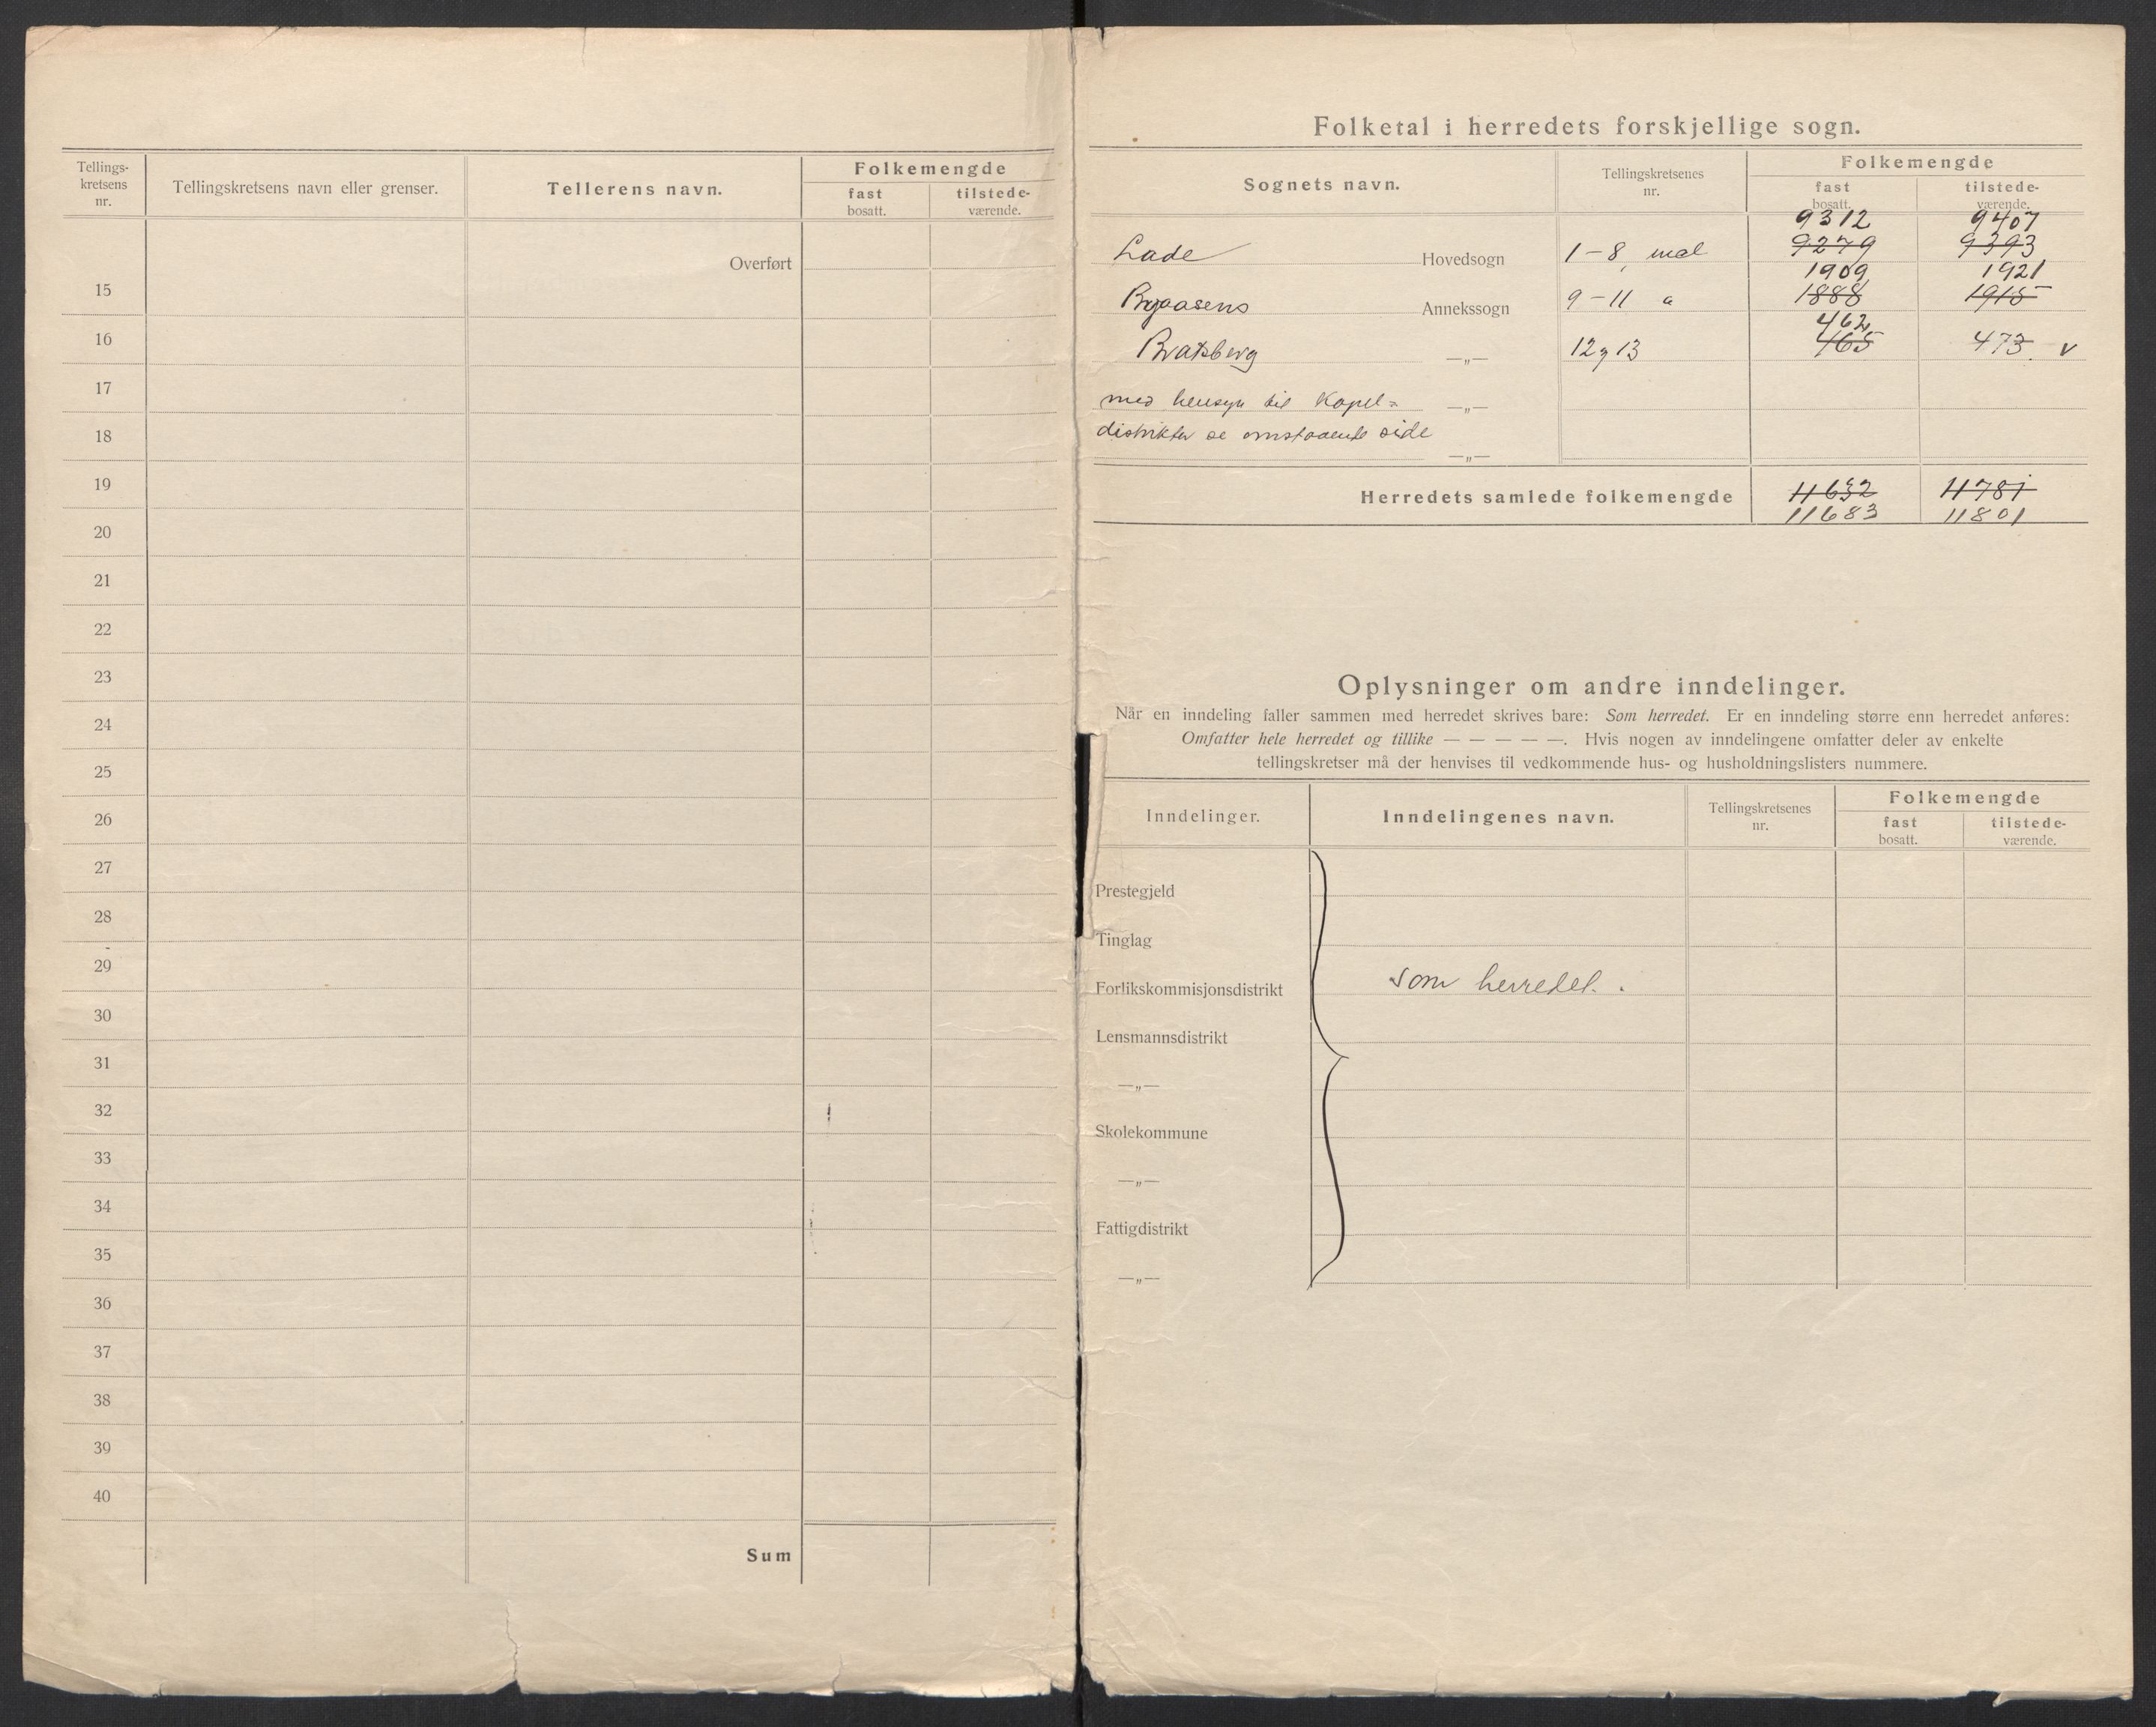 Tellings-
kretsens
nr.
Tellingskretsens navn eller grenser.
Tellerens navn.
Folkemengde
fast
bosatt.
tilstede-
værende.
Overført
15
16
17
18
19
20
21
22
23
24
25
26
27
28
29
30
31
32
33
34
35
36
37
38
39
40
Sum
Folketal i herredets forskjellige sogn.
Sognets navn.
Tellingskretsenes
nr.
Folkemengde
fast
bosatt.
tilstede-
værende.
9312 9407
Lade Hovedsogn 1-8 9279 9393
1909 1921
Annekssogn 9-11 1888 1915
462
Bratsberg —„— 12 13 465 473 v
med hensyn til Kapel= —„—
distrikter se omstaaende side
—„—
Herredets samlede folkemengde 11632 11781
11683 11801
Oplysninger om andre inndelinger.
Når en inndeling faller sammen med herredet skrives bare: Som herredet. Er en inndeling større enn herredet anføres:
Omfatter hele herredet og tillike — — — — —. Hvis nogen av inndelingene omfatter deler av enkelte
tellingskretser må der henvises til vedkommende hus- og husholdningslisters nummere.
Inndelinger.
Inndelingenes navn.
Tellingskretsenes
nr.
Folkemengde
fast
bosatt.
tilstede-
værende.
Prestegjeld
Tinglag
Forlikskommisjonsdistrikt som herredet.
Lensmannsdistrikt
—„—
Skolekommune
—„—
Fattigdistrikt
—„—